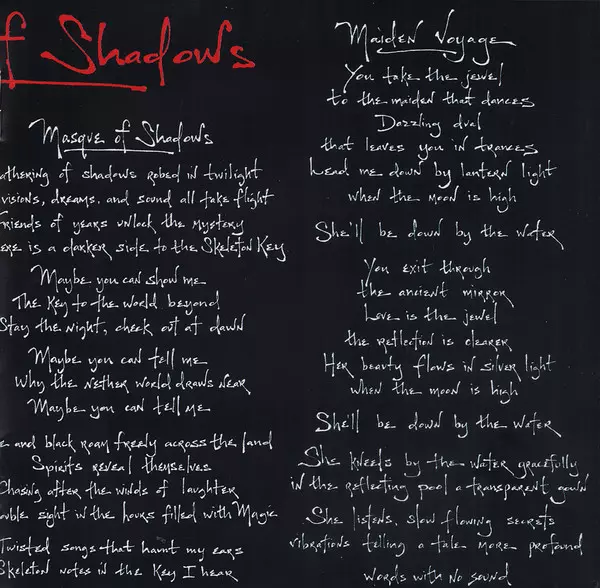 f Shadows
Masque of Shadows
athering of shadows robed in twilight
visions, dreams, and sound all take flight
Friends of years unlock the mystery
ere is a darker side to the Skeleton Key
Maybe you can show me
The Key to the world beyond
Stay the night, check out at dawn
Maybe you can tell me
Why the nether world draws near
Maybe you can tell me
e and black roam freely across the land
Spirits reveal themselves
Chasing after the winds of laughter
ouble sight in the hours filled with Magic
Twisted songs that haunt my ears
Skeleton notes in the Key I hear
Maiden Voyage
You take the jewel
to the maiden that dances
Dazzling duel
that leaves you in trances
Lead me down by lantern light
when the moon is high
She'll be down by the water
You exit through
the ancient mirror
Love is the jewel
the reflection is clearer
Her beauty flows in silver light
when the moon is high
She'll be down by the water
She kneels by the water gracefully
in the reflecting pool a transparent gown
She listens, slow flowing secrets
vibrations telling a tale more profound
words with no sound